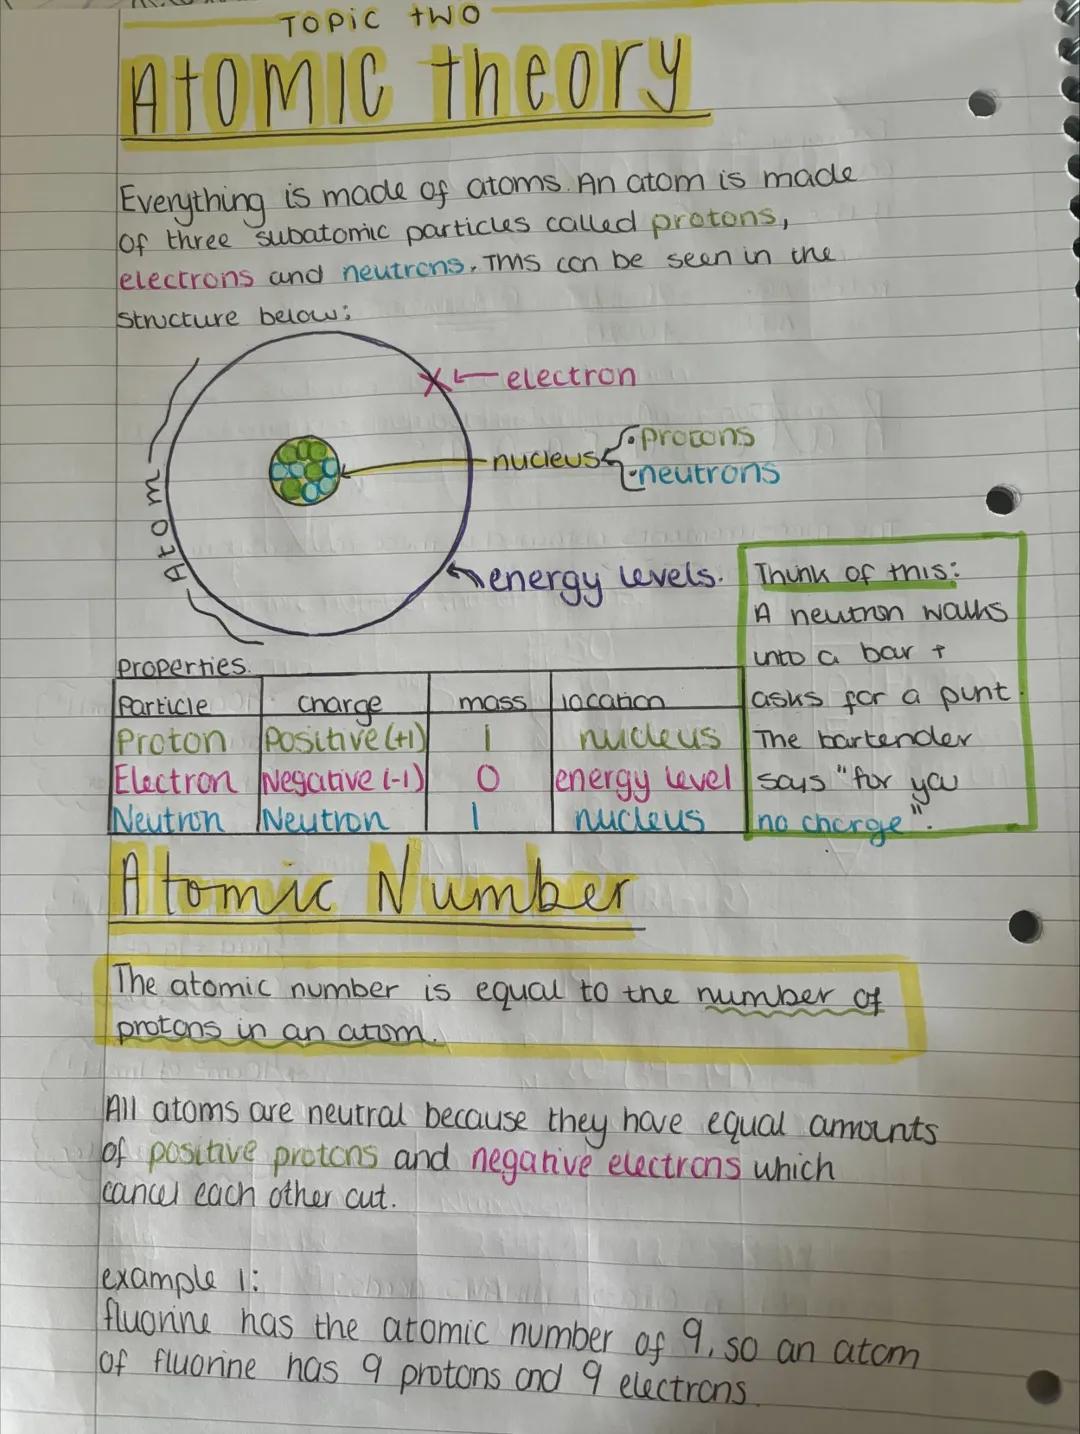 TOPIC TWO
Atomic theory
Everything is made of atoms. An atom is made
of three subatomic particles called protons,
electrons and neutrons. This can be seen in the
structure below:
electron
nucleus
• protons
• neutrons
Atom
energy levels.
Think of this:
A neutron walks
into a bar +
asks for a pint.
The bartender
says "for you
no charge".
properties.
Particle charge mass location
Proton Positive (+1) 1 nucleus
Electron Negative (-1) 0 energy level
Neutron Neutron 1 nucleus
Atomic Number
The atomic number is equal to the number of
protons in an atom.
All atoms are neutral because they have equal amounts
of positive protons and negative electrons which
cancel each other out.
example 1:
fluorine has the atomic number of 9, so an atom
of fluorine has 9 protons and 9 electrons.